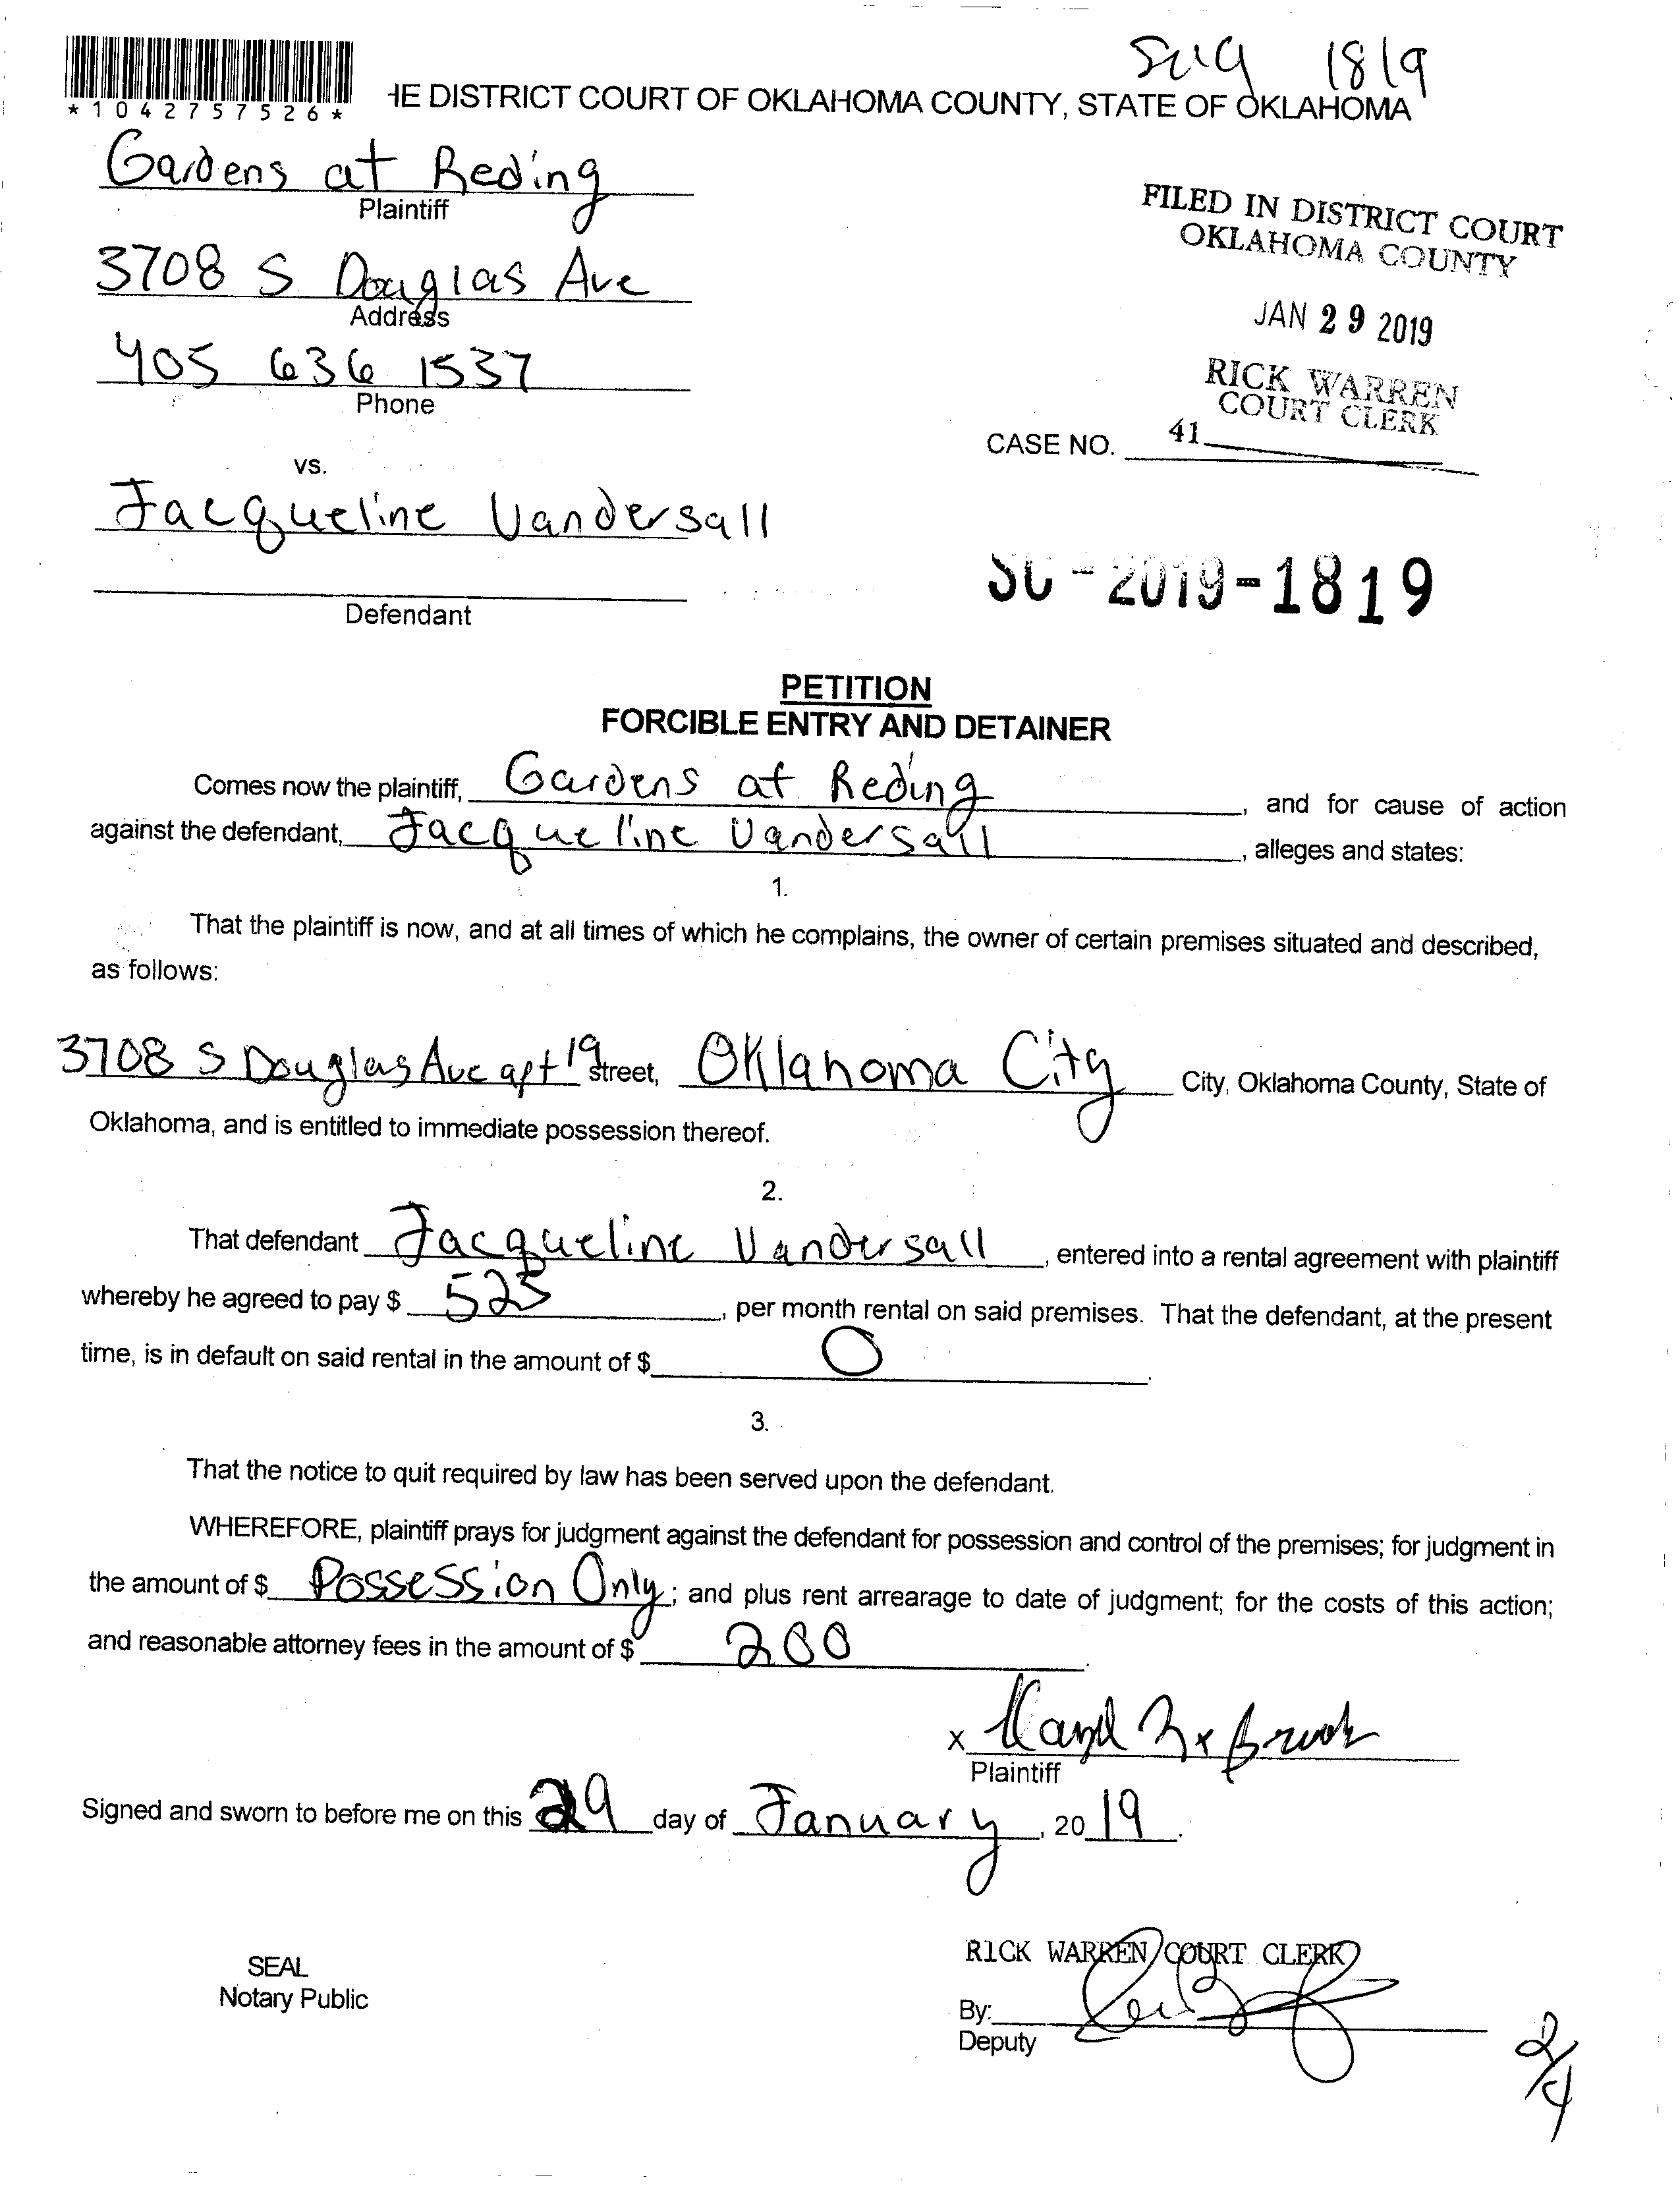 1819
*1042757526*
HE DISTRICT COURT OF OKLAHOMA COUNTY, STATE OF OKLAHOMA
Gardens at Reding
Plaintiff
FILED IN DISTRICT COURT
OKLAHOMA COUNTY
3708 S Douglas Ave
Address
JAN 29 2019
405 636 1537
Phone
RICK WARREN
COURT CLERK
CASE NO. 41
vs.
Jacqueline Vandersall
SC-2019-1819
Defendant
PETITION
FORCIBLE ENTRY AND DETAINER
Comes now the plaintiff, Gardens at Reding, and for cause of action
against the defendant, Jacqueline Vandersall, alleges and states:
1.
That the plaintiff is now, and at all times of which he complains, the owner of certain premises situated and described,
as follows:
3708 S Douglas Ave apt 19 street, Oklahoma City City, Oklahoma County, State of
Oklahoma, and is entitled to immediate possession thereof.
2.
That defendant Jacqueline Vandersall, entered into a rental agreement with plaintiff
whereby he agreed to pay $ 525, per month rental on said premises. That the defendant, at the present
time, is in default on said rental in the amount of $ 0.
3.
That the notice to quit required by law has been served upon the defendant.
WHEREFORE, plaintiff prays for judgment against the defendant for possession and control of the premises; for judgment in
the amount of $ Possession Only; and plus rent arrearage to date of judgment; for the costs of this action;
and reasonable attorney fees in the amount of $ 200.
x
Plaintiff
Signed and sworn to before me on this 29 day of January, 2019.
RICK WARREN COURT CLERK
SEAL
Notary Public
By:
Deputy
2/4